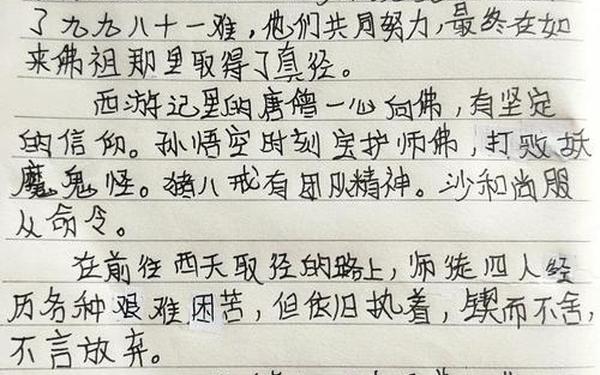 了九九八十一难，他们共同努力，最终在如
来佛祖那里取得了真径。
西游记里的唐僧一心向佛，有坚定
的信仰。孙悟空时刻宝护师佛，打败妖
魔鬼怪。猪八戒有团队精神。沙和尚服
从命令。
在前往西天取径的路上，师徒四人经
历各种艰难困苦，但依旧执着，锲而不舍，
不言放弃。